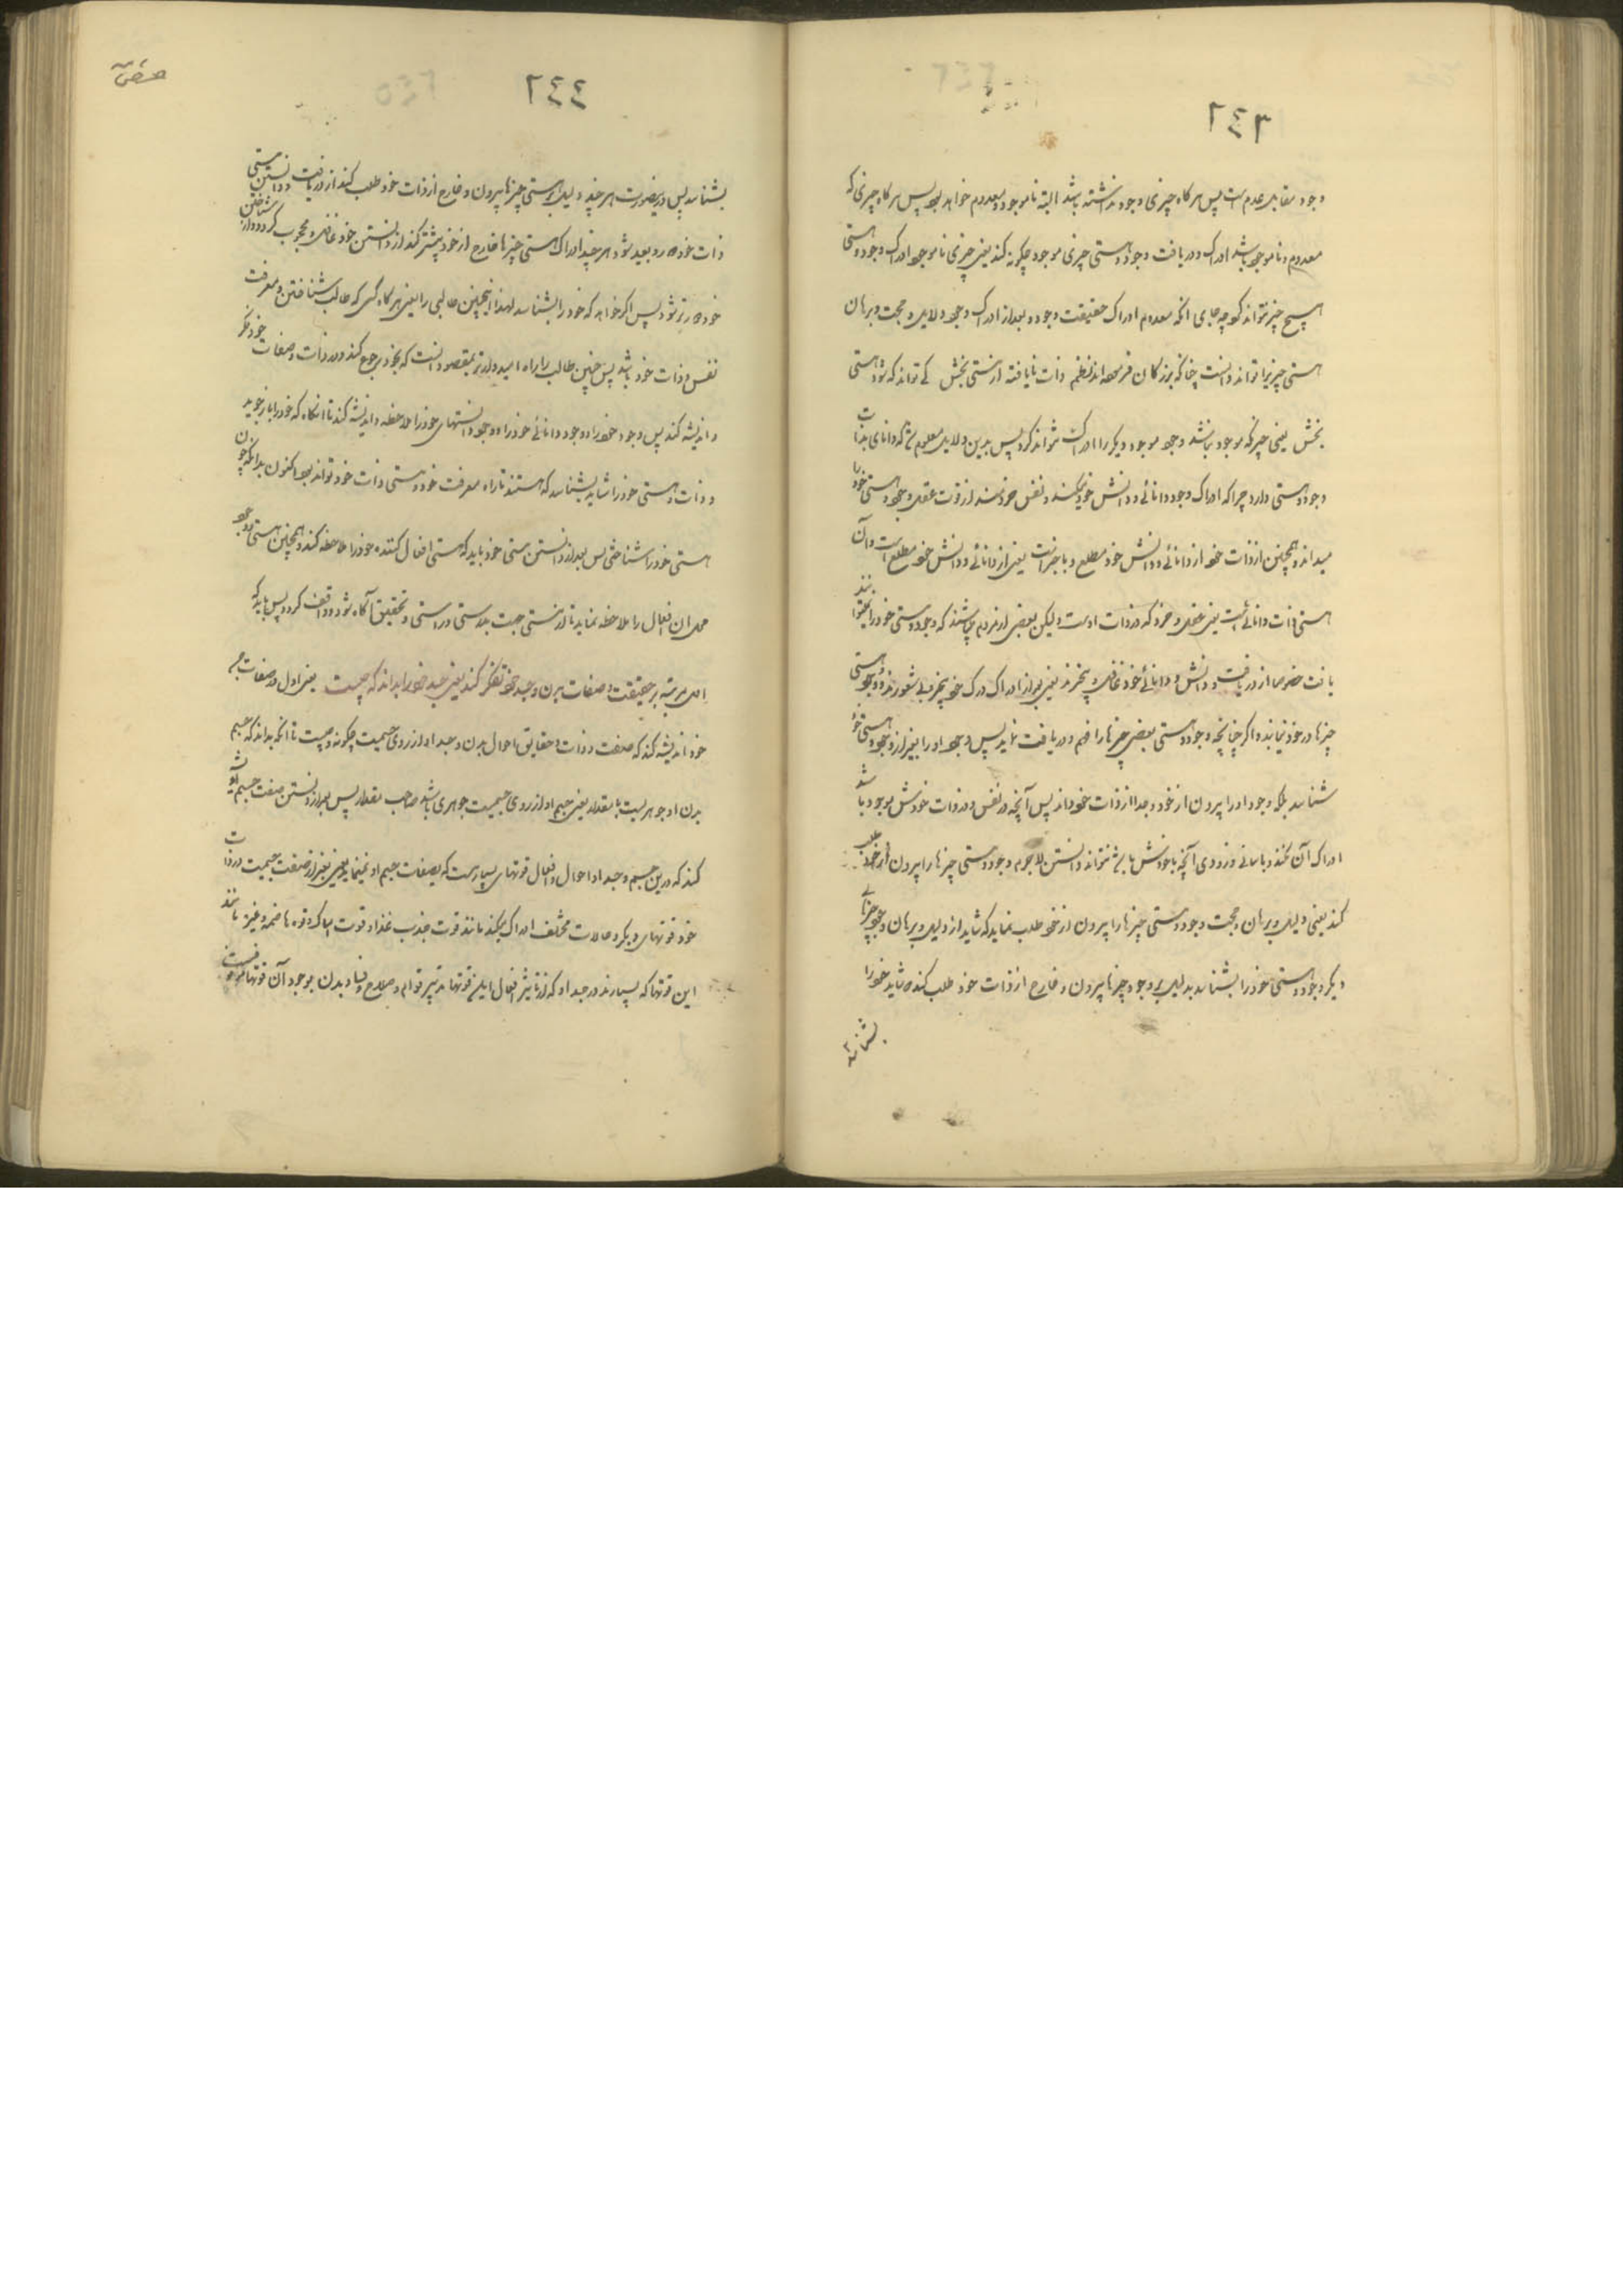 ٢٤٣
وجود مقابل عدم است پس هر کاه چیزی وجود نداشته باشد البته ناموجود و معدوم خواهد بود پس هر کاه چیزی که
معدوم و ناموجود باشد ادراک و دریافت وجود و هستی چیزی موجود چکونه کند یعنی چیزی ناموجود ادراک وجود و هستی
هیچ چیز نتواند کرد چه جای انکه معدوم ادراک حقیقت وجود و بعد از ادراک وجود دلایل و حجت و برهان
هستی چیزیرا تواند دانست چنانکه بزرکان فرموده اند نظم ذات نایافته از هستی بخش کی تواند که شود هستی
بخش یعنی چیز که موجود نباشد وجود موجود دیکر را ادراک نتواند کرد پس بدین دلایل معلوم شد که دانای بذات
وجود و هستی دارد چرا که ادراک وجود دانائی و دانش خود میکند و نفس خردمند از قوت عقل وجود و هستی خود را
میداند و همچنین از ذات خود از دانائی و دانش خود مطلع و با خبر است یعنی از دانائی و دانش خود مطلع است و آن
هستی ذات دانائی است یعنی عقل و خرد که در ذات اوست ولیکن بعضی از مردم میباشند که وجود و هستی خود را نتوانند
یافت خصوصا از دریافت و دانش و دانائی خود غافل و بیخبرند یعنی بغیر از ادراک درک خود بیخبر و بی شعورند و وجود و هستی
چیزها در خود نیابند و اکر چنانچه وجود و هستی بعضی چیزها را فهم و دریافت نماید پس وجود او را بغیر از وجود و هستی خود
شناسد بلکه وجود او را بیرون از خود و جدا از ذات خود داند پس آنچه در نفس و در ذات خودش موجود باشد
ادراک آن نکند و باسانی و زودی آنچه با خودش باشد نتواند دانستن لاجرم وجود و هستی چیزها را بیرون از خود طلب
کند یعنی دلیل و برهان و حجت وجود و هستی چیزها را بیرون از خود طلب نماید که شاید از دلیل و برهان وجود چیزهای
دیکر وجود و هستی خود را بشناسد بدلیل بر وجود چیزها بیرون و خارج از ذات خود طلب کند که شاید خود را
بشناسد
٢٤٤
بشناسد پس درینصورت هر چند دلیل بر هستی چیزها بیرون و خارج از ذات خود طلب کند از دریافت و دانستن هستی
ذات خود دور و بعید شود هر چند ادراک هستی چیزها خارج از خود بیشتر کند از دانستن خود غافل و محجوب کردد و از شناختن
خود دورتر شود پس اکر خواهد که خود را بشناسد لهذا اینچنین طالبی را یعنی هر کاه کسی که طالب شناختن و معرفت
نفس و ذات خود باشد پس چنین طالب را راه امیدوارتر بمقصود انست که بخود رجوع کند و در ذات و صفات خود فکر
و اندیشه کند پس وجود خود را و وجود دانائی خود را و وجود دانستنهای خود را ملاحظه و اندیشه کند تا انکاه که خود را باز جوید
و ذات و هستی خود را شاید بشناسد که هستند تا راه معرفت خود و هستی ذات خود تواند بود اکنون بدانکه چون
هستی خود را شناختی پس بعد از دانستن هستی خود باید که هستی افعال کننده خود را ملاحظه کند و همچنین هستی و وجود
محل ان افعال را ملاحظه نماید تا از هستی جهت بدرستی و راستی و تحقیق آکاه شود و واقف کردد پس باید که
اول مرتبه بر حقیقت و صفات بدن و جسد خود تفکر کند یعنی جسد خود را بداند که چیست یعنی اول در صفات جسد
خود اندیشه کند که صفت و ذات و حقایق احوال بدن و جسد او از روی جسمیت چکونه و چیست تا انکه بداند که جسم
بدن او جوهریست با مقدار یعنی جسم او از روی جسمیت جوهری باشد صاحب مقدار پس بعد از دانستن صفت جسم اندیشه
کند که درین جسم و جسد او احوال و افعال قوتهای بسیار هست که بصفات جسم او نمینماید یعنی بغیر از صفت جسمیت در ذات
خود قوتهای دیکر و حالات مختلف ادراک میکند مانند قوت جذب غذا و قوت امساک و قوه هاضمه و غیره مانند
این قوتها که بسیارند در جسد او که از تاثیر افعال این قوتها تدبیر قوام و صلاح و فساد بدن بوجود آن قوتها موقوفست